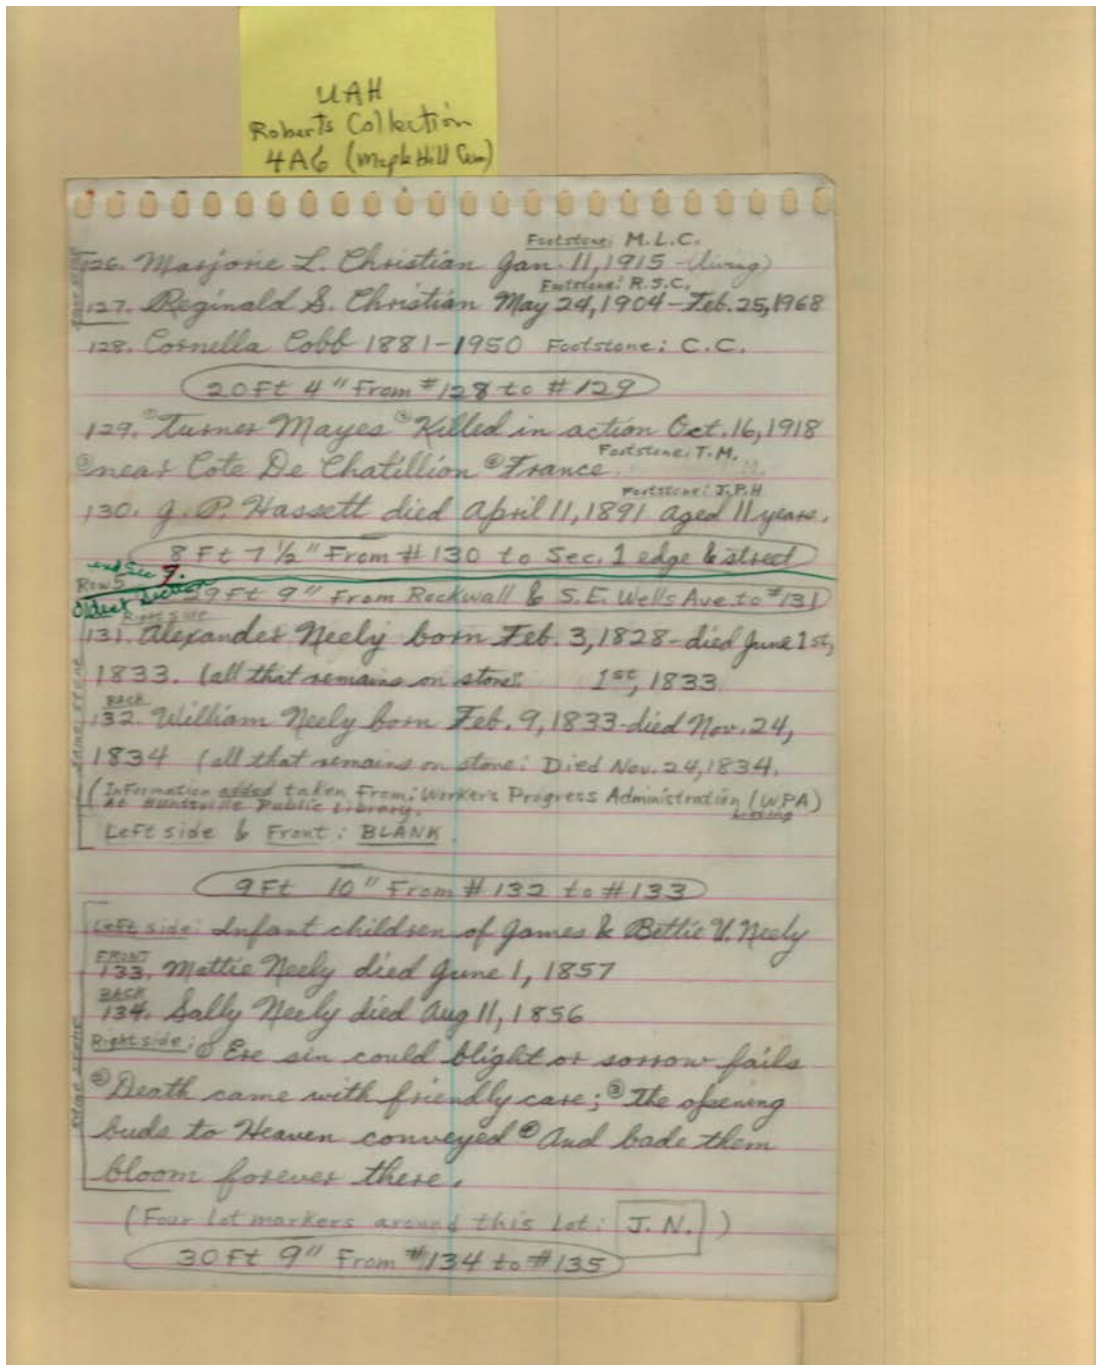 UAH
Roberts Collection
4A6 (Maple Hill Cem)
Footstone: M.L.C.
Same Stone
126. Marjorie L. Christian Jan. 11, 1915 - (living)
Footstone: R.S.C.
127. Reginald S. Christian May 24, 1904 - Feb. 25, 1968
128. Cornella Cobb 1881-1950 Footstone: C.C.
20 Ft 4" From #128 to #129
129. ① Turner Mayes ② Killed in action Oct. 16, 1918
Footstone: T.M.
③ near Cote De Chatillion ④ France
Footstone: J.P.H
130. J. P. Hassett died April 11, 1891 aged 11 years.
8 Ft 7 1/2" From #130 to Sec. 1 edge & street
end Sec 7.
Row 5
Oldest Section
9 Ft 9" From Rockwall & S.E. Wells Ave. to #131
Right side
131. Alexander Neely born Feb. 3, 1828 - died June 1st,
1833. (all that remains on stone: 1st, 1833
Same Stone
Back
132. William Neely born Feb. 9, 1833 - died Nov. 24,
1834 (all that remains on stone: Died Nov. 24, 1834.
(Information added taken From: Worker's Progress Administration (WPA)
At Huntsville Public Library. Listing
Left side & Front: BLANK.
9 Ft 10" From #132 to #133
Left side: Infant children of James & Bettie V. Neely
FRONT
133. Mattie Neely died June 1, 1857
BACK
134. Sally Neely died Aug 11, 1856
Same Stone
Right side: ① Ere sin could blight or sorrow fails
② Death came with friendly care; ③ The opening
buds to Heaven conveyed ④ And bade them
bloom forever there.
(Four lot markers around this lot: J. N. )
30 Ft 9" From #134 to #135